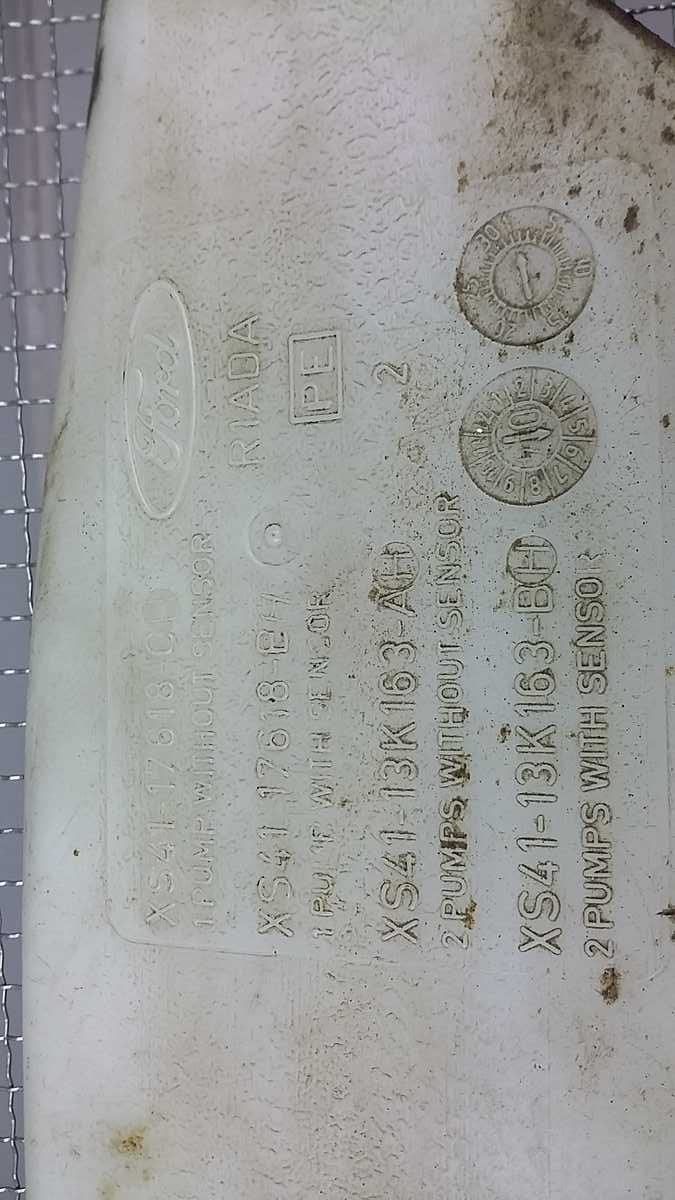 Ford
RIADA
PE
2
XS41-17618-
1 PUMP WITHOUT SENSOR
XS41-17618-
1 PUMP WITH SENSOR
XS41-13K163-AH
2 PUMPS WITHOUT SENSOR
XS41-13K163-BH
2 PUMPS WITH SENSOR
30 1 5 10 15 20 25
1 2 3 4 5 6 7 8 9 10 11 12